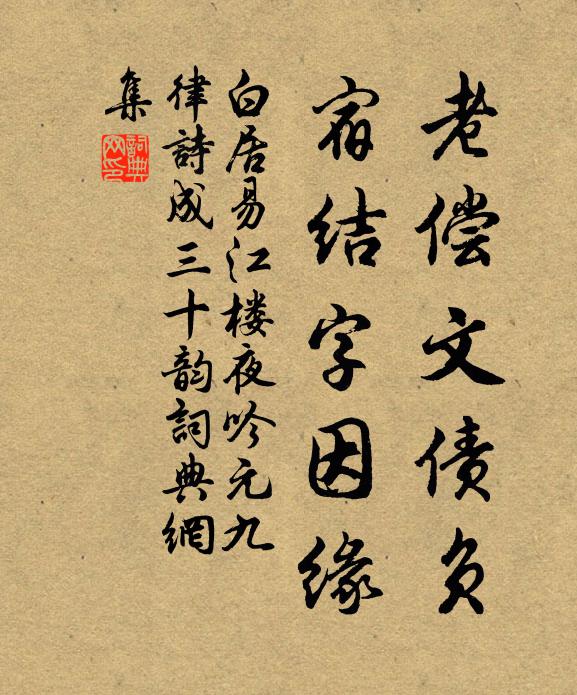 老偿文债负
宿结字因缘
白居易江楼夜吟元九
律詩成三十韵詞典網
集
詞典
网印